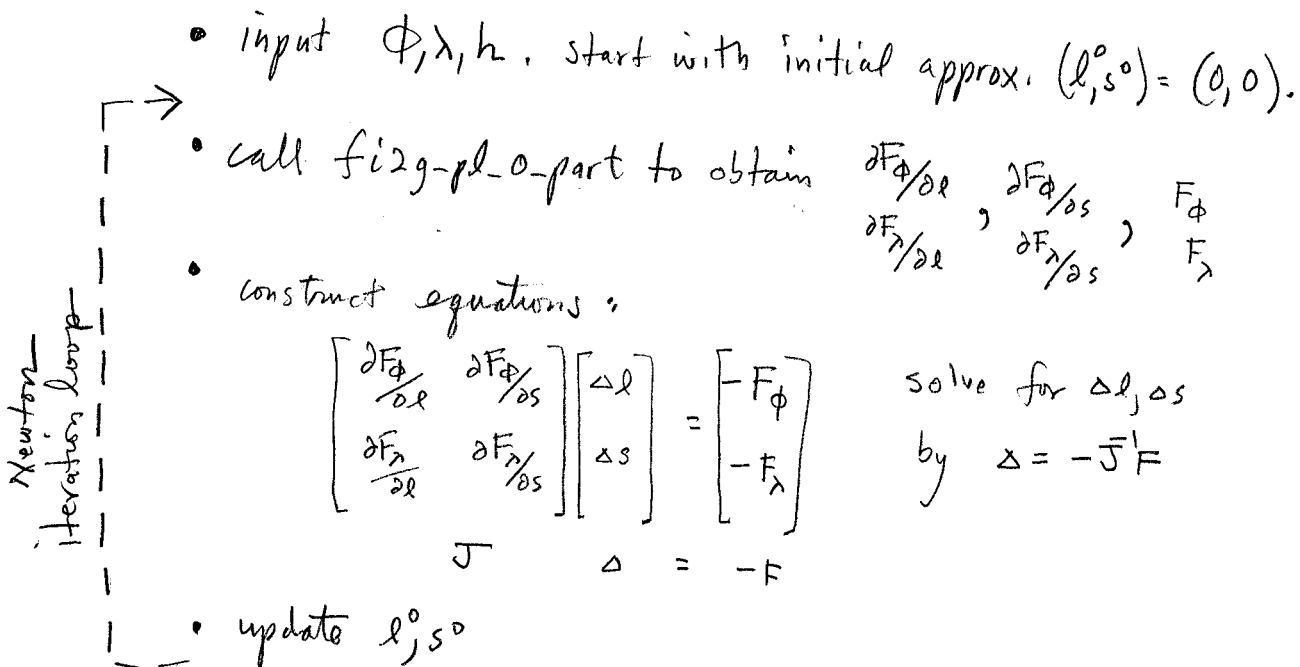 • input ϕ, λ, h. start with initial approx. (l⁰, s⁰) = (0, 0).
• call fi2g-pl_0-part to obtain ∂Fϕ/∂l , ∂Fϕ/∂s , Fϕ
∂Fλ/∂l ∂Fλ/∂s Fλ
• construct equations:
[ ∂Fϕ/∂l ∂Fϕ/∂s ] [ Δl ] = [ -Fϕ ] solve for Δl, Δs
[ ∂Fλ/∂l ∂Fλ/∂s ] [ Δs ] [ -Fλ ] by Δ = -J⁻¹F
J Δ = -F
• update l⁰, s⁰
Newton
iteration loop